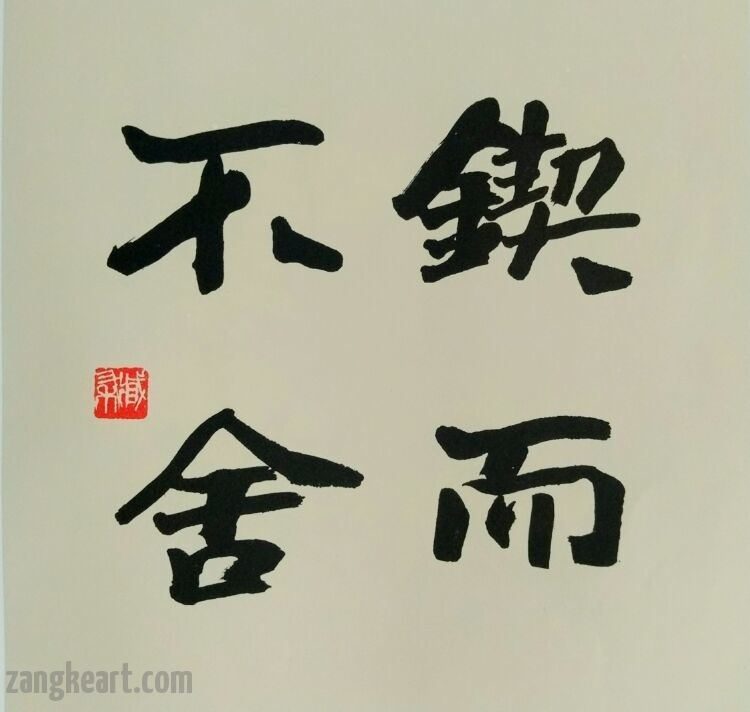 鍥而
不舍
zangkeart.com